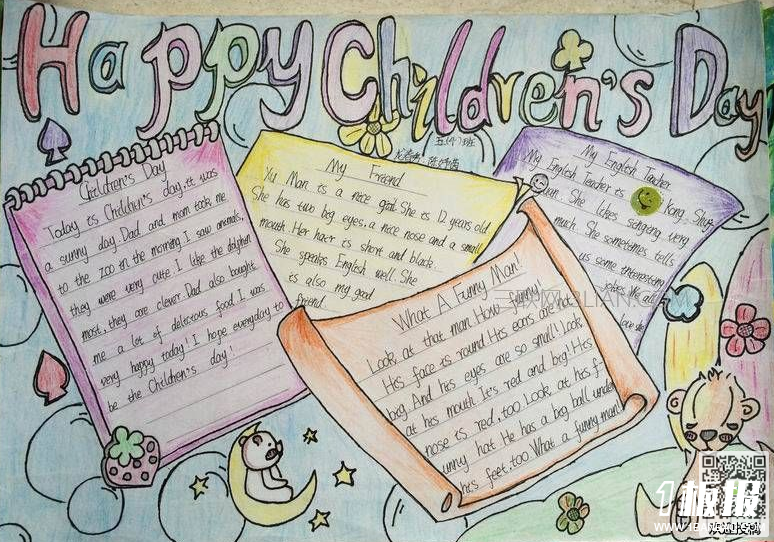 Happy Children's Day
Children's Day
Today is Children's day, it was
a sunny day. Dad and mom took me
to the zoo in the morning. I saw animals,
they were very cute. I like the dolphin
most, they are clever. Dad also bought
me a lot of delicious food. I was
very happy today! I hope everyday to
be the Children's day!
My Friend
Yu Man is a nice girl. She is 12 years old
She has two big eyes, a nice nose and a small
mouth. Her hair is short and black.
She speaks English well. She
is also my good
friend.
My English Teacher
My English Teacher is Kong Shu
uan. She likes singing very
much. She sometimes tells
us some interesting
jokes. We all
love she
What A Funny Man!
Look at that man. How funny!
His face is round. His ears are not
big. And his eyes are so small! Look
at his mouth. It's red and big! His
nose is red, too. Look at his f-
unny hat. He has a big ball under
his feet, too. What a funny man!
1板报